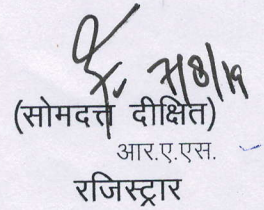 7/8/19
(सोमदत्त दीक्षित)
आर.ए.एस.
रजिस्ट्रार